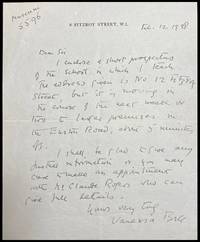 8 FITZROY STREET, W.1.
Feb. 12 1938
Dear Sir
I enclose a short prospectus
of the school in which I teach.
The address given is No 12 Fitzroy
Street but it is moving in
the course of the next week or
two to larger premises in
the Euston Road, about 5 minutes
off.
I shall be glad to give any
further information or you may
care to make an appointment
with Mr Claude Rogers who can
give full details.
Yours very truly
Vanessa Bell